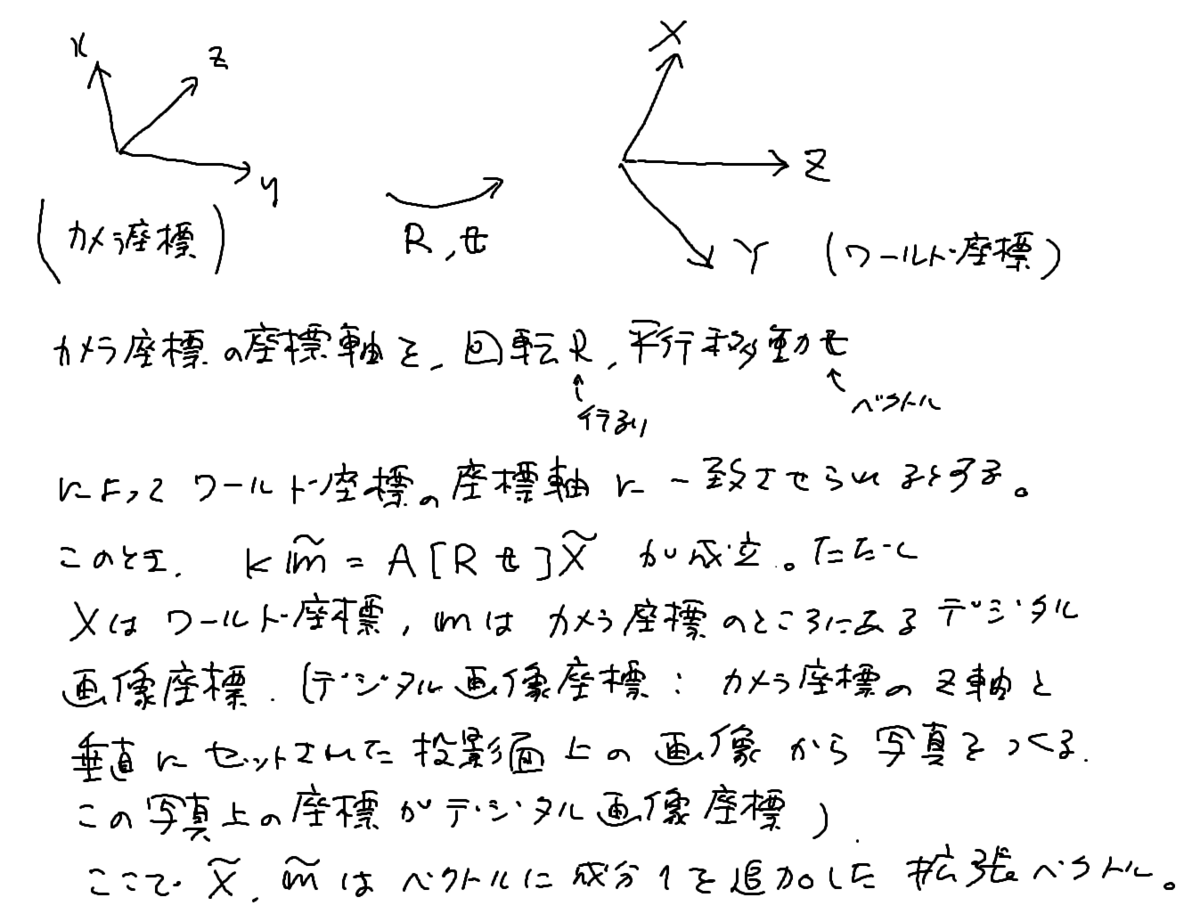 x
z
y
(カメラ座標)
R, t
X
Z
Y
(ワールド座標)
カメラ座標の座標軸を、回転R, 平行移動t
↑行列
↑ベクトル
によってワールド座標の座標軸に一致させられるとする。
このとき、 k m̃ = A [R t] X̃ が成立。ただし
Xはワールド座標, mはカメラ座標のところにあるデジタル
画像座標. (デジタル画像座標: カメラ座標のz軸と
垂直にセットされた投影面上の画像から写真をつくる.
この写真上の座標がデジタル画像座標)
ここで X̃, m̃ はベクトルに成分1を追加した拡張ベクトル。